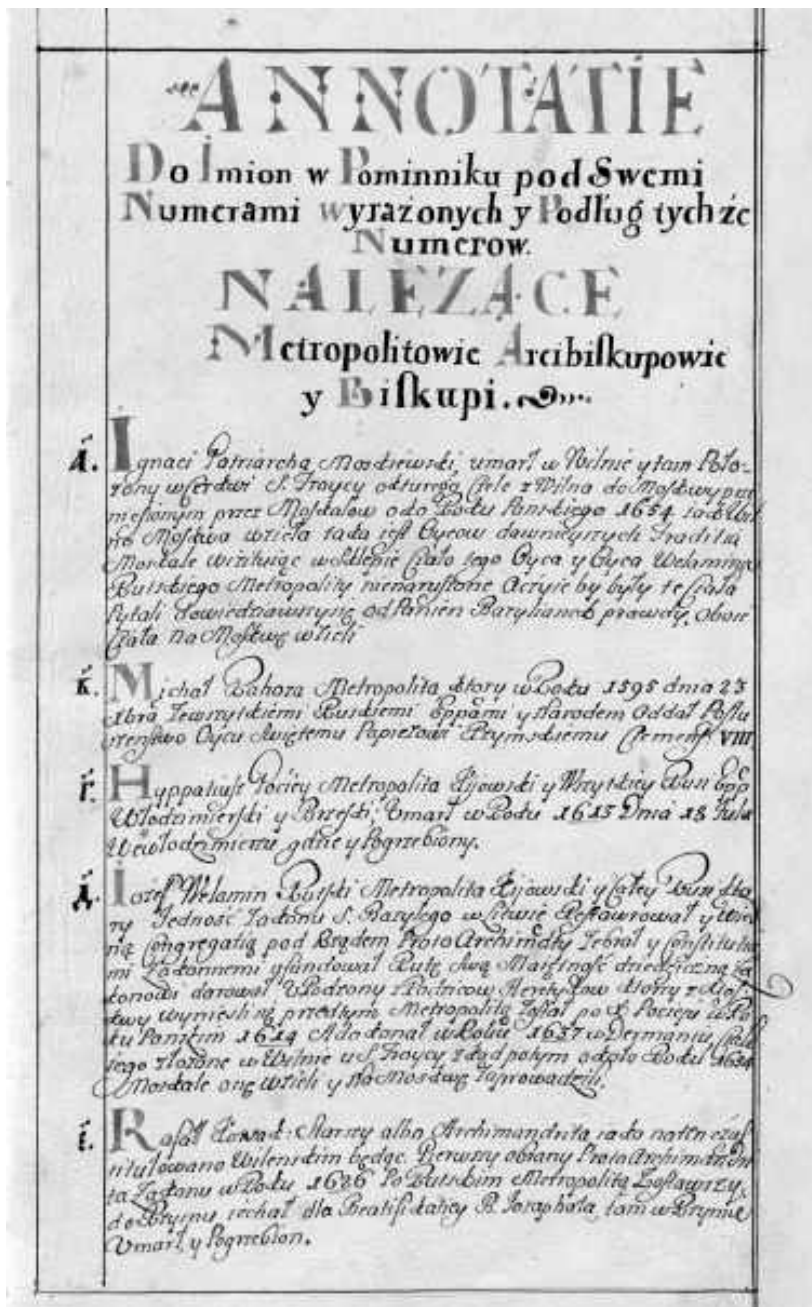 ANNOTATIE
Do Imion w Pominniku pod Swemi
Numerami wyrażonych y Podług tychże
Numerow.
NALEZĄCE
Metropolitowie Arcibiſkupowie
y Biſkupi.
Ignaci Patriarcha Moskiewski, umarł w Wilnie y tam Poło-
zony w Cerkwi S. Troycy ciele z Wilna do Moskwy prze
niesionym przez Moskalow Roku Panskiego 1654 iako Wil
no Moskwa wzieła iaka iest Oycow dawnieyszych Traditia
Moskale w Sklepie Ciało iego Oyca y Oyca Welamina
Rutskiego Metropolity nienaruszone by były te Ciała
Pytali od Panien prawdy, oboie
Ciała na Moskwę wzieli
Michał Rahoza Metropolita ktory w Roku 1595 dnia 23
Ruskiemi y Narodem Oddał Poſłu
szenſtwo Oycu Swiętemu Papieżowi Rzymskiemu Clemens VIII
Hyppatiuſz Pociey Metropolita Kijowski y Wszytkiey Rusi Epp
Włodzimierſki y Brzeſki, Umarł w Roku 1613 Dnia 18 Iula
We Włodzimierzu gdzie y Pogrzebiony.
Iozef Welamin Rutſki Metropolita Kijowski y Całey Rusi kto
ry Jedność Zakonu S. Bazylego w Reſtawrował y
ną Congregatią pod Rządem Proto Archimdty Zebrał y Conſtitutia
mi Zakonnemi ufundował Rutę ſwą Maiętność dziedziczną Za
konowi darował Urodzony z Rodzicow Heretykow ktorzy z Moſ
kwy wynieſli się Metropolitą Zoſtał po Pocieiu w Ro
ku Pańskim 1614 A dokonał w Roku 1637 w Dermaniu, Ciało
iego złożone w Wilnie u S. Troycy zkąd potym około Roku 1654
Moskale one wzieli y na Moskwę Zaprowadzili.
Rafał Korsak Starszy albo Archimandrita iako na ten czas
titułowano Wilenskim będąc. Pierwszy obrany Proto Archimandri
ta Zakonu w Roku 1626 Po Rutskim Metropolitą Zoſtawszy,
do Rzymu iechał dla Beatifikacyey B. Iosaphata, tam w Rzymie
Umarł y Pogrzebion.